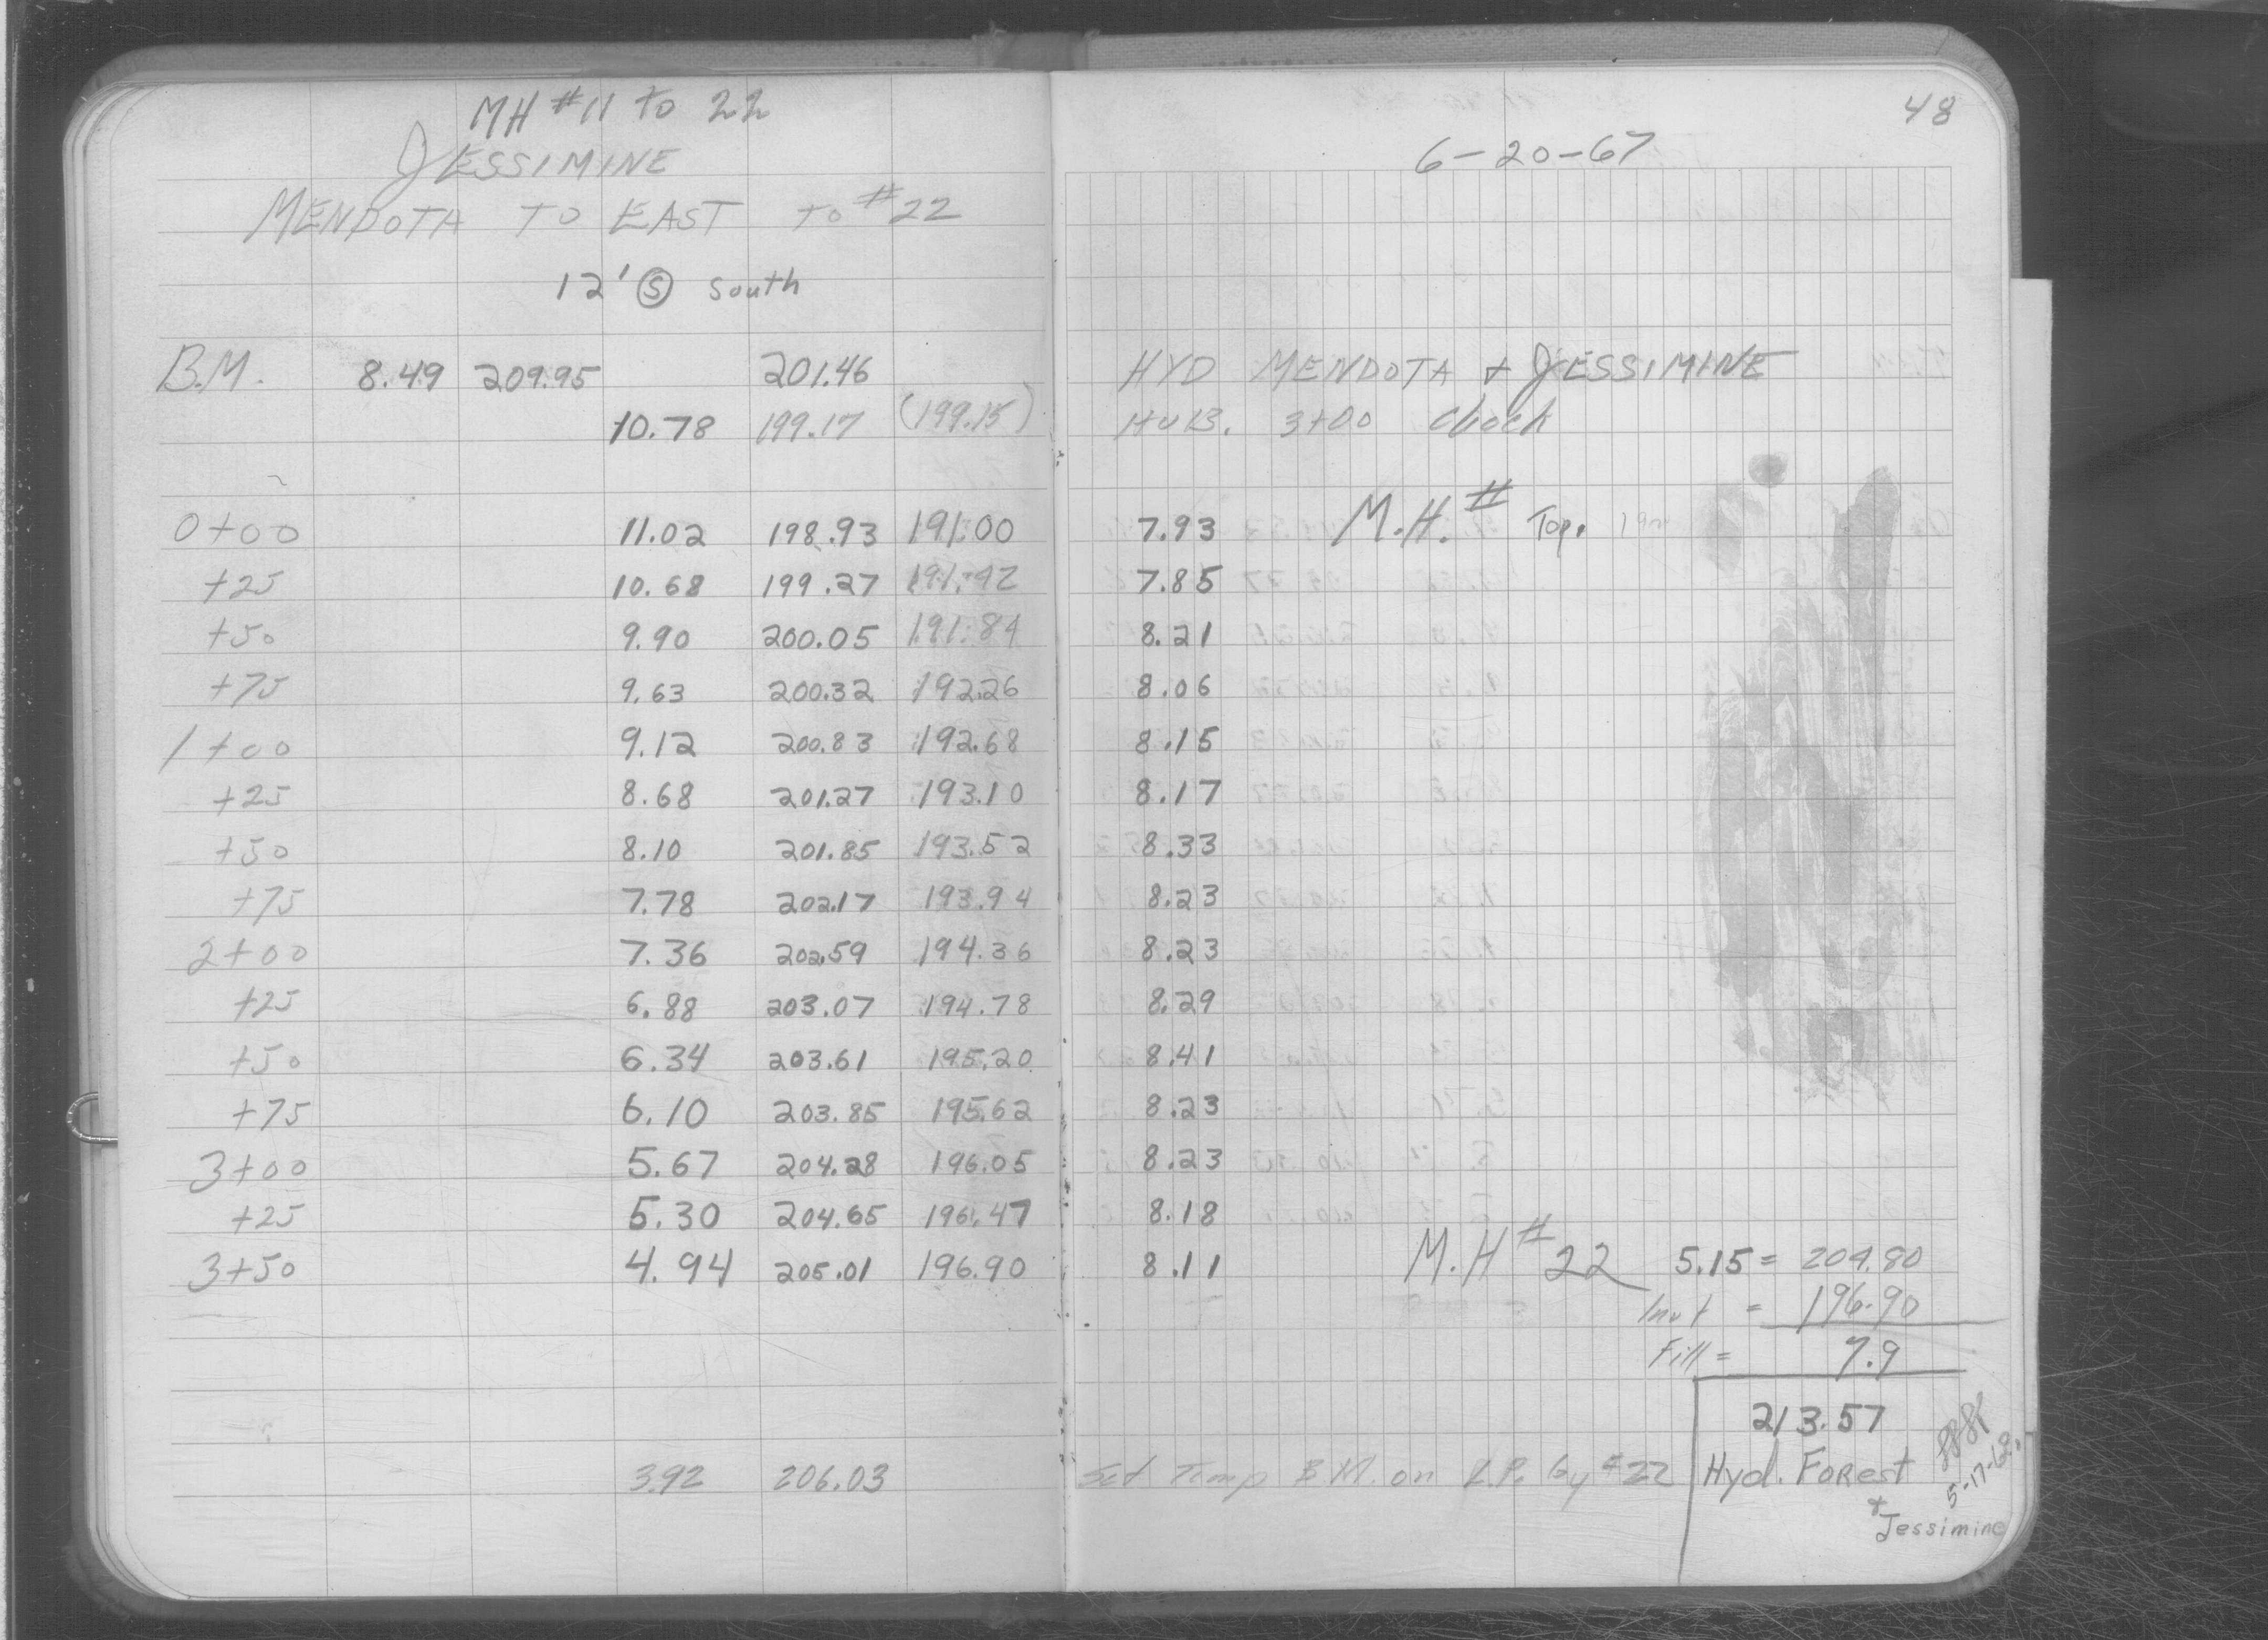 48
MH #11 to 22
JESSIMINE
6-20-67
MENDOTA TO EAST TO #22
12' Ⓢ South
B.M. 8.49 209.95 201.46 HYD MENDOTA + JESSIMINE
10.78 199.17 (199.15) HUB. 3+00 check
0+00 11.02 198.93 191.00 7.93 M.H. # Top.
+25 10.68 199.27 191.42 7.85
+50 9.90 200.05 191.84 8.21
+75 9.63 200.32 192.26 8.06
1+00 9.12 200.83 192.68 8.15
+25 8.68 201.27 193.10 8.17
+50 8.10 201.85 193.52 8.33
+75 7.78 202.17 193.94 8.23
2+00 7.36 202.59 194.36 8.23
+25 6.88 203.07 194.78 8.29
+50 6.34 203.61 195.20 8.41
+75 6.10 203.85 195.62 8.23
3+00 5.67 204.28 196.05 8.23
+25 5.30 204.65 196.47 8.18
3+50 4.94 205.01 196.90 8.11 M.H # 22 5.15 = 204.80
Invt = 196.90
Fill = 7.9
213.57
3.92 206.03 Set Temp B.M. on L.P. by #22 Hyd. Forest
+ Jessimine
5-17-68